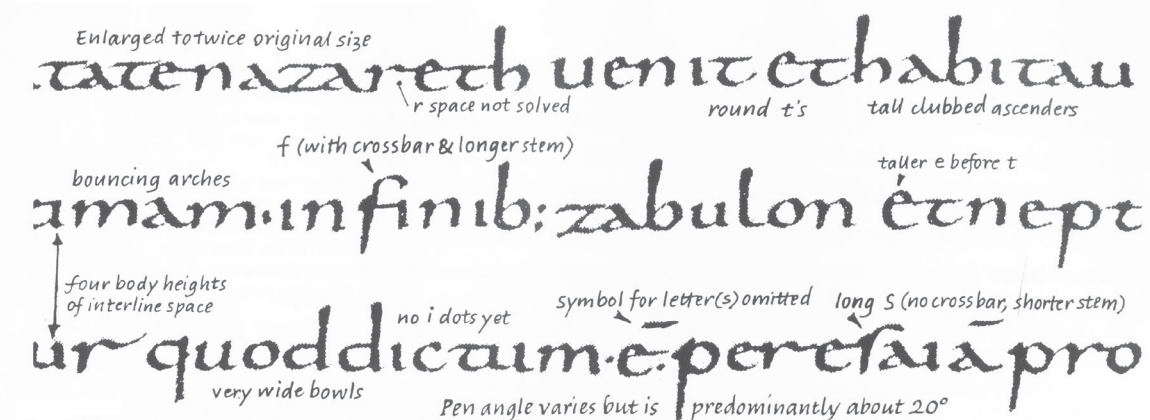 Enlarged to twice original size
.tatenazareth uenit ethabitau
r space not solved
round t's
tall clubbed ascenders
f (with crossbar & longer stem)
bouncing arches
taller e before t
amam·infinib; zabulon etnept
four body heights
of interline space
symbol for letter(s) omitted
long S (no crossbar, shorter stem)
no i dots yet
ur quoddictum·ē·peresaiā pro
very wide bowls
Pen angle varies but is predominantly about 20°